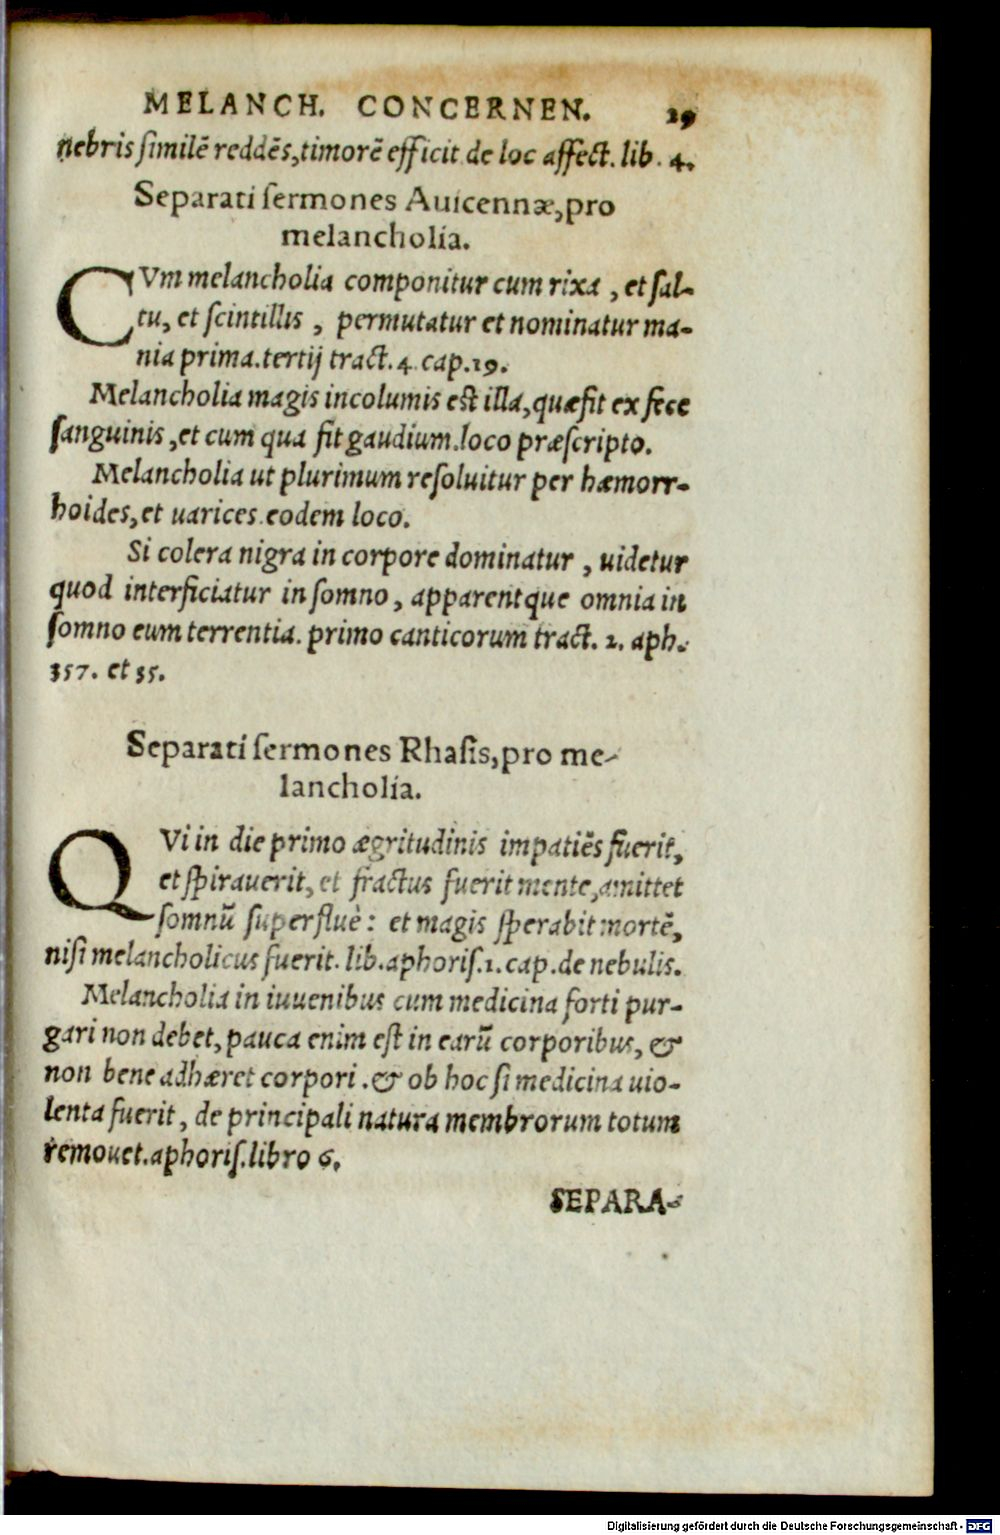 MELANCH. CONCERNEN. 29
nebris ſimilẽ reddẽs, timorẽ efficit de loc affect. lib. 4.
Separati ſermones Auicennæ, pro
melancholia.
CVm melancholia componitur cum rixa, et ſal-
tu, et ſcintillis, permutatur et nominatur ma-
nia prima. tertij tract. 4. cap. 19.
Melancholia magis incolumis est illa, quæ fit ex fece
ſanguinis, et cum qua fit gaudium. loco præſcripto.
Melancholia ut plurimum reſoluitur per hæmorr-
hoides, et uarices. eodem loco.
Si colera nigra in corpore dominatur, uidetur
quod interficiatur in ſomno, apparentque omnia in
ſomno eum terrentia. primo canticorum tract. 2. aph.
357. et 35.
Separati ſermones Rhaſis, pro me-
lancholia.
QVi in die primo ægritudinis impatiẽs fuerit,
et ſpirauerit, et fractus fuerit mente, amittet
ſomnũ ſuperfluè: et magis ſperabit mortẽ,
niſi melancholicus fuerit. lib. aphoriſ. 1. cap. de nebulis.
Melancholia in iuuenibus cum medicina forti pur-
gari non debet, pauca enim eſt in earũ corporibus, &
non bene adhæret corpori. & ob hoc ſi medicina uio-
lenta fuerit, de principali natura membrorum totum
remouet. aphoriſ. libro 6.
SEPARA-
Digitalisierung gefördert durch die Deutsche Forschungsgemeinschaft - DFG